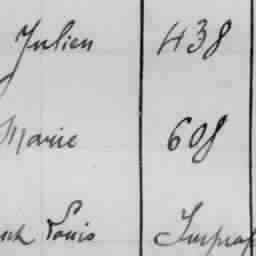 Julien 438
Marie 608
Louis